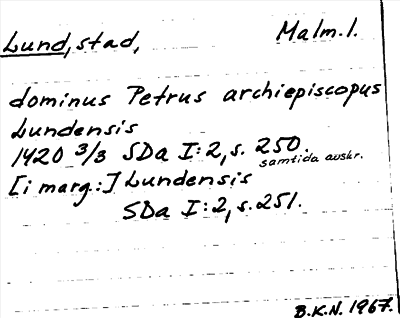 Lund, stad, Malm. l.
dominus Petrus archiepiscopus
Lundensis
1420 3/3 SDa I:2, s. 250.
samtida avskr.
[i marg.:] Lundensis
SDa I:2, s. 251.
B.K.N. 1967.